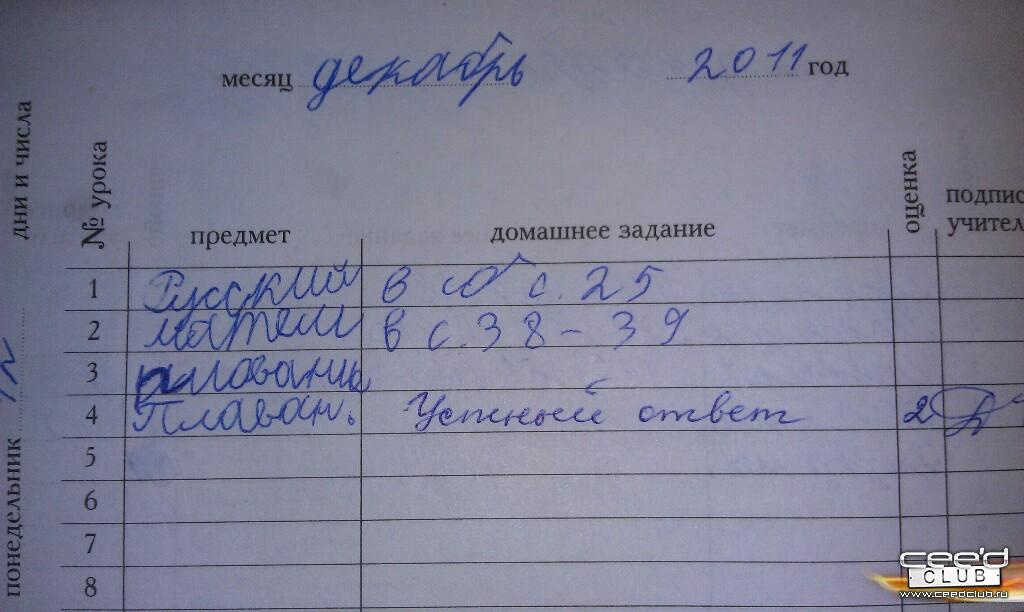 месяц декабрь 2011 год
дни и числа
№ урока
предмет
домашнее задание
оценка
подпис
учител
понедельник
1 Русский в с. 25
2 матем в с. 38 - 39
3
4 Плаван. Устный ответ 2
5
6
7
8
cee'd
CLUB
www.ceedclub.ru